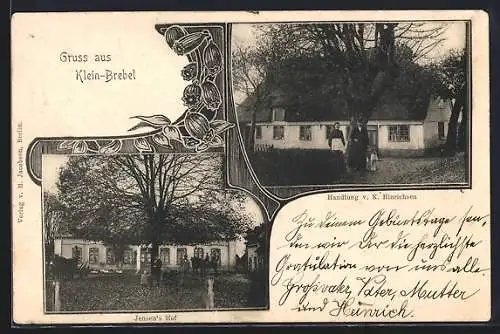 Gruss aus
Klein-Brebel
Verlag v. H. Jacobsen, Berlin.
Handlung v. K. Hinrichsen
Jensen's Hof
Zu deinem Geburtstage sen,
den wir dir die herzlichste
Gratulation von uns alle.
Großvater, Vater, Mutter
und Heinrich.